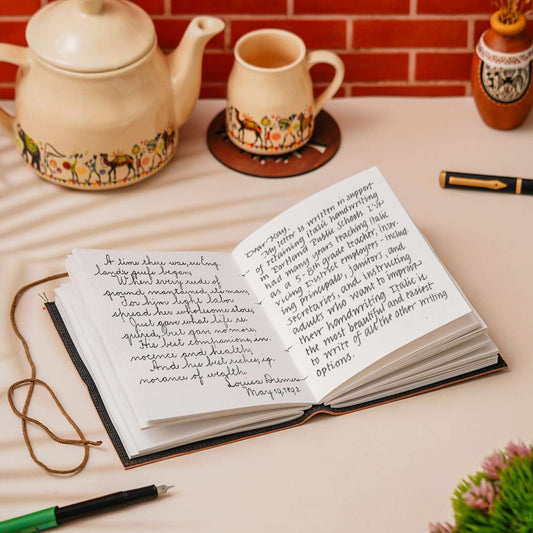 A time there was, ere Eng
lands griefs began,
When every rood of
ground maintained its man;
For him light labor
spread his wholesome store,
Just gave what life re
quired, but gave no more:
His best companions, in
nocence and health;
And his best riches, ig
norance of wealth.
Louisa
May 19, 1893.
Dear Kay,
My letter is written in support
of retaining italic handwriting
in Portland Public Schools. I've
had many years teaching italic
as a 5-8th grade teacher, inser-
vicing District employees - includ
ing principals, janitors, and
secretaries, and instructing
adults who want to improve
their handwriting. Italic is
the most beautiful and easiest
to write of all the other writing
options.